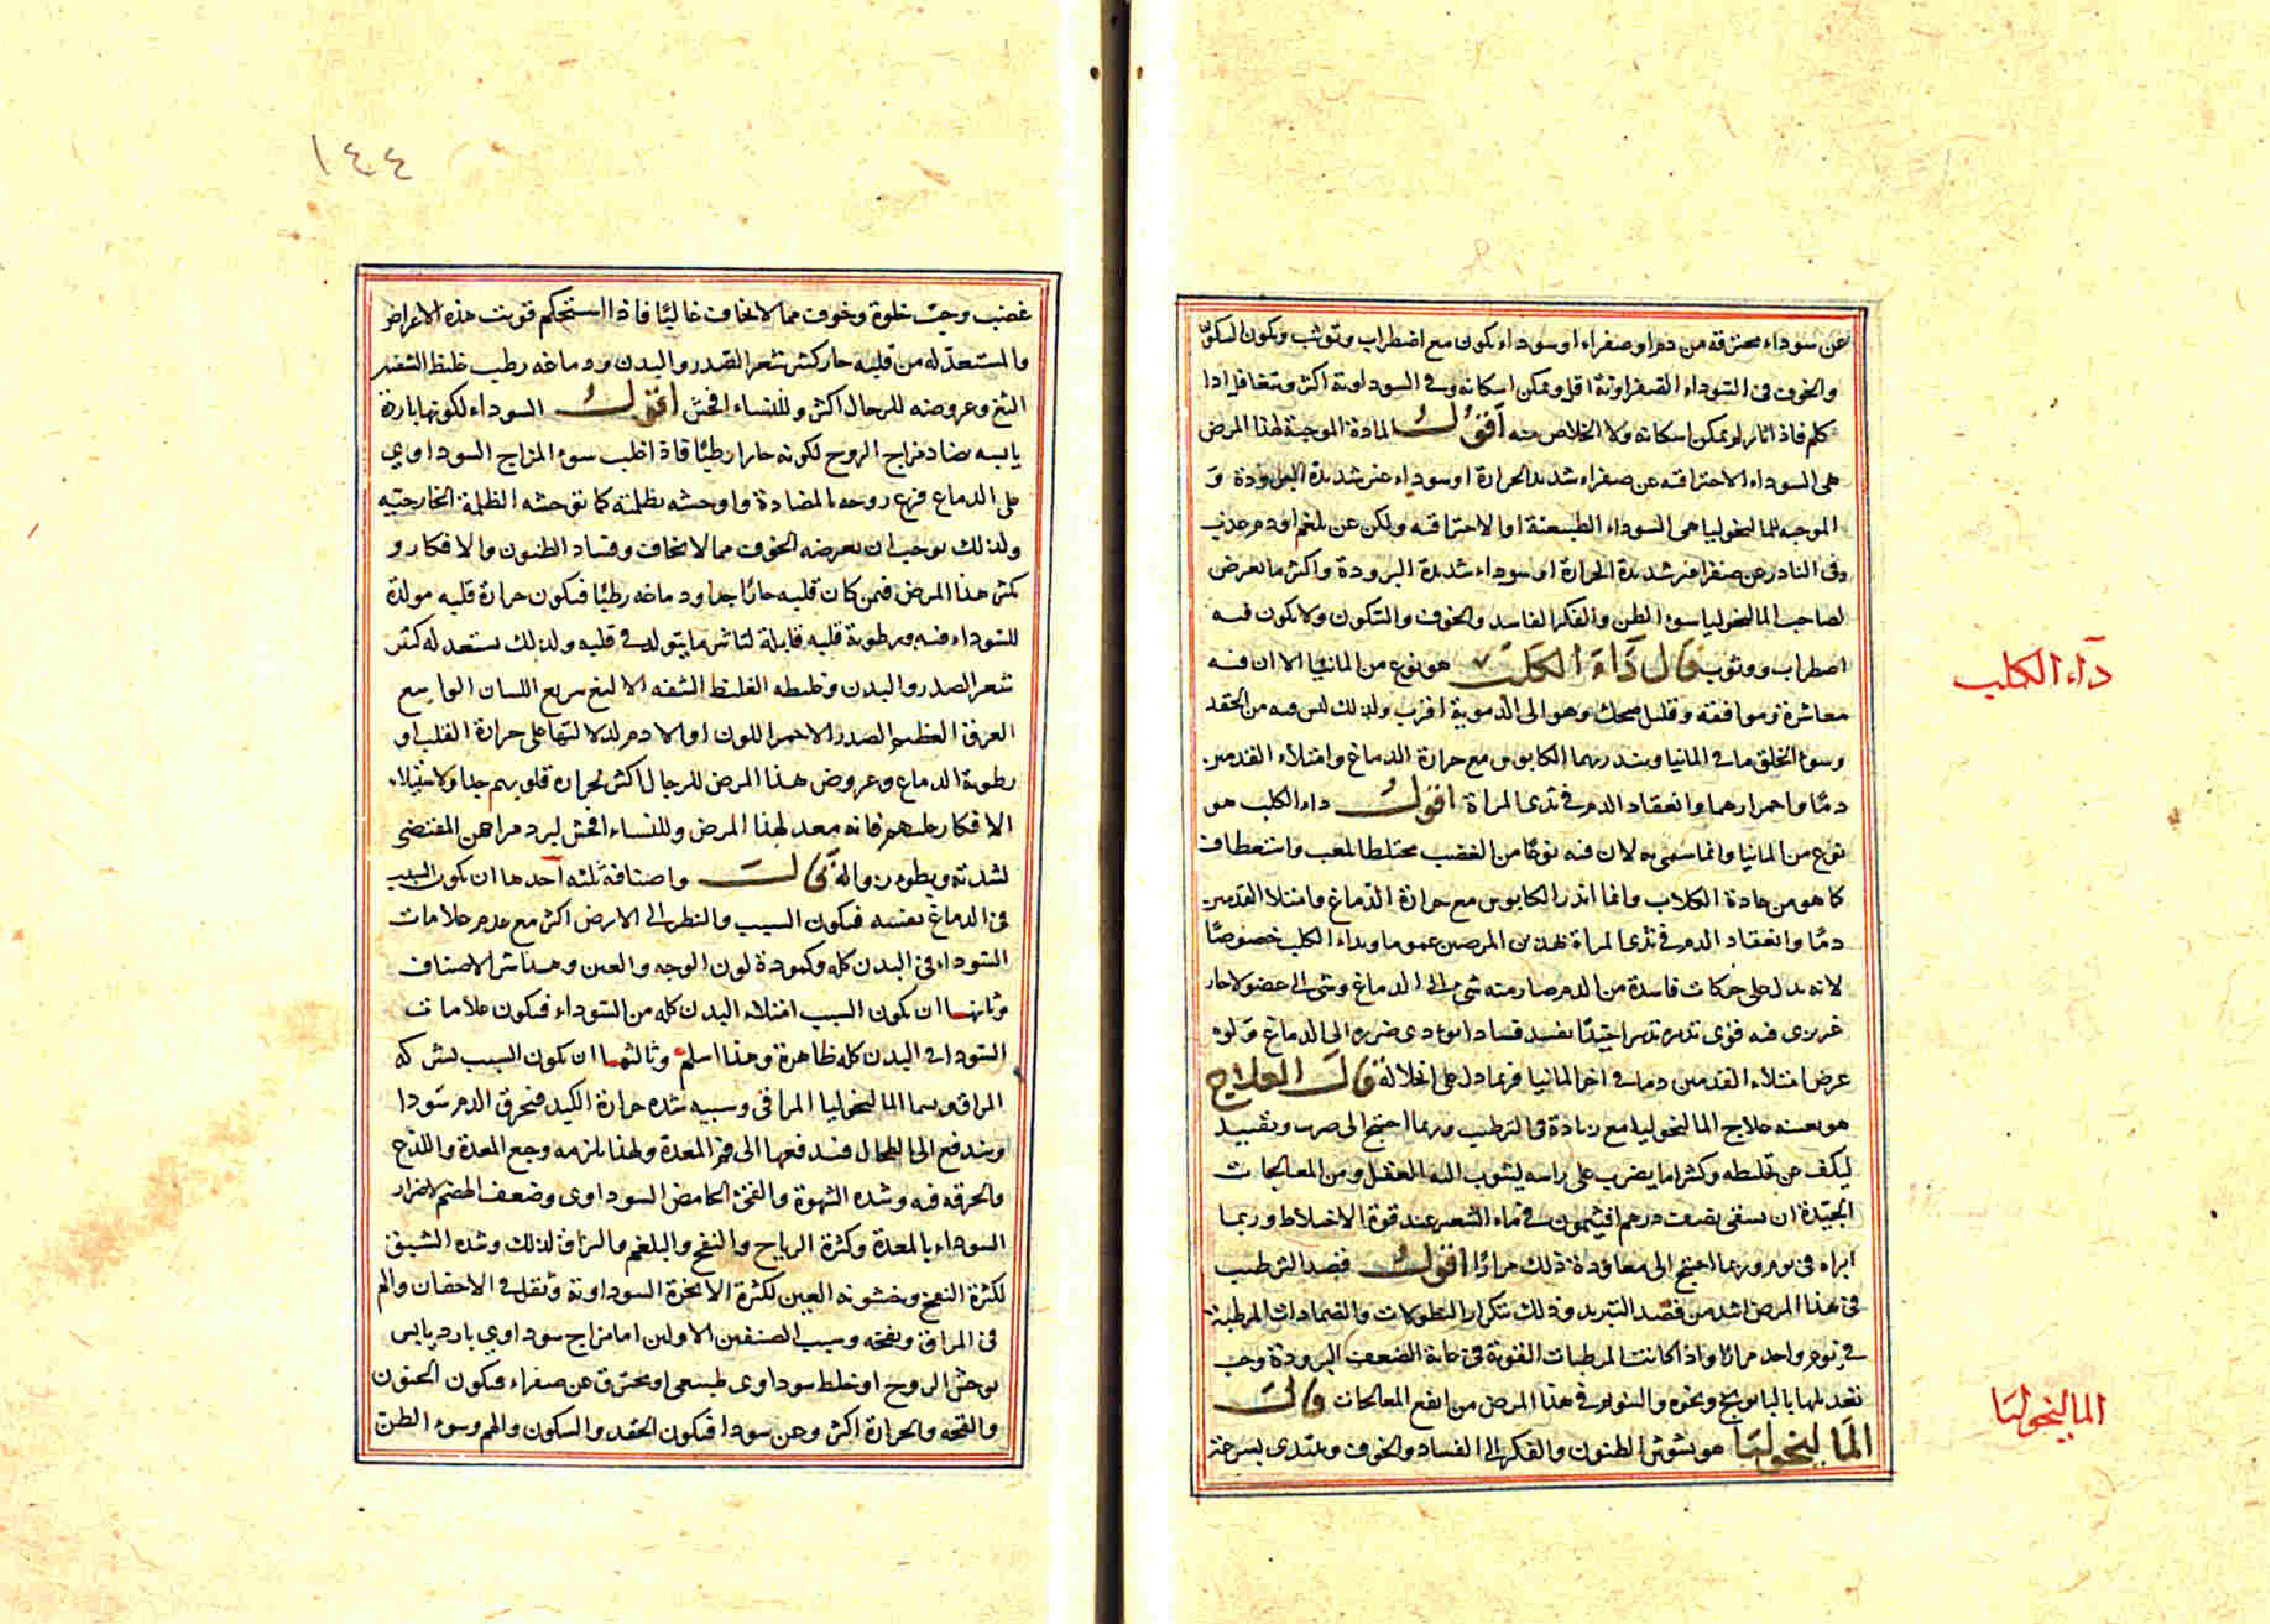 عن سوداء محترقة من دم او صفراء او سوداء يكون مع اضطراب وتوثب ويكون السكون
والخوف فى السوداء الصفراوية اقل ويمكن اسكاته وفى السوداوية اكثر ويتغافل اذا
كلم فاذا ثار لم يمكن اسكاته ولا الخلاص منه اقول المادة الموجبة لهذا المرض
هى السوداء الاحتراقيه عن صفراء شديد الحرارة او سوداء غير شديدة البرودة و
الموجبه للمالنخوليا هى السوداء الطبيعية او الاحتراقيه ولكن عن بلغم او دم عذب
وفى النادر عن صفرا غير شديدة الحرارة او سوداء شديدة البرودة واكثر ما يعرض
لصاحب المالنخوليا سوء الظن والفكر الفاسد والخوف والسكون ولا يكون فيه
اضطراب ووثوب قال داء الكلب هو نوع من المانيا الا ان فيه
معاشرة وموافقه وقليل ضحك وهو الى الدموية اقرب ولذلك ليس فيه من الحقد
وسوء الخلق ما فى المانيا وينذر بهما الكابوس مع حرارة الدماغ وامتلاء القدمين
دمًا واحمرارهما وانعقاد الدم فى ثدى المراة اقول داء الكلب هو
نوع من المانيا وانما سمى به لان فيه نوعًا من الغضب مختلطا بلعب واستعطاف
كما هو من عادة الكلاب وانما انذر الكابوس مع حرارة الدماغ وامتلا القدمين
دمًا وانعقاد الدم فى ثدى المراة بهذين المرضين عموما وبداء الكلب خصوصًا
لانه يدل على حركات فاسدة من الدم صار منه شى الى الدماغ وشى الى عضو لا حار
غريزى فيه قوى تدبره تدبيرا جيدًا يفسد فسادا يودى ضرره الى الدماغ ولو
عرض امتلاء القدمين دما فى اخر المانيا فربما دل على انحلاله قال العلاج
هو بعينه علاج المالنخوليا مع زيادة فى الترطيب وربما احتيج الى ضرب وتقييد
ليكف عن تخليطه وكثيرا ما يضرب على راسه ليثوب اليه العقل ومن المعالجات
الجيدة ان يسقى نصف درهم افيثمون فى ماء الشعير عند قوة الاخلاط وربما
ابراه فى يوم وربما احتيج الى معاودة ذلك مرارًا اقول قصد الترطيب
فى هذا المرض اشد من قصد التبريد وذلك بتكرار النطولات والضمادات المرطبة
فى يوم واحد مرارًا واذا كانت المرطبات القوية فى غاية الضعف البرودة وجب
تعديلها بالبابونج ونحوه والتنويم فى هذا المرض من انفع المعالجات قال
المالنخوليا هو تشوش الظنون والفكر الى الفساد والخوف ويبتدى بسرعة
داء الكلب
المالنخوليا
١٤٤
غضب وحب خلوة وخوف مما لا يخاف غالبًا فاذا استحكم قويت هذه الاعراض
والمستعد له من قلبه حار كثير شعر الصدر والبدن ودماغه رطب غليظ الشفتين
الثغ وعروضه للرجال اكثر وللنساء افحش اقول السوداء لكونها باردة
يابسه تضاد مزاج الروح لكونه حارا رطبًا فاذا غلب سوء المزاج السوداوي
على الدماغ فزع روحه بالمضادة واوحشه بظلمته كما توحشه الظلمة الخارجيه
ولذلك يوجب ان يعرضه الخوف مما لا يخاف وفساد الظنون والافكار و
كثر هذا المرض فيمن كان قلبه حارًا جدا ودماغه رطبًا فيكون حرارة قلبه مولدة
للسوداء فيه ورطوبة قلبه قابلة لتاثير ما يتولد فى قلبه ولذلك يستعد له كثير
شعر الصدر والبدن وغليظه الغليظ الشفه الالثغ سريع اللسان الواسع
العرق العظيم الصدر الاحمر اللون او الادم لدلالتها على حرارة القلب او
رطوبة الدماع وعروض هذا المرض للرجال اكثر لحرارة قلوبهم جدا ولاستيلاء
الافكار عليهم فانه معد لهذا المرض وللنساء افحش لبرد مزاجهن المقتضى
لشدته وبطوء زواله قال واصنافه ثلثه احدها ان يكون السبب
فى الدماغ نفسه فيكون السبب والنظر الى الارض اكثر مع عدم علامات
السوداء فى البدن كله وكمودة لون الوجه والعين وهذا شر الاصناف
وثانيها ان يكون السبب امتلاء البدن كله من السوداء فيكون علامات
السودا فى البدن كله ظاهرة وهذا اسلم وثالثها ان يكون السبب بشركه
المراق ويسما المالنخوليا المراقى وسببه شده حرارة الكبد فيحرق الدم سودا
ويندفع الى الطحال فيدفعها الى فم المعدة ولهذا يلزمه وجع المعدة واللذع
والحرقه فيه وشده الشهوة والنفخ الحامض السوداوى وضعف الهضم لاضرار
السوداء بالمعدة وكثرة الرياح والنفخ والبلغم والبزاق لذلك وشده الشبق
لكثرة النفخ وخشونه العين لكثرة الابخرة السوداوية وثقل فى الاجفان والم
فى المراق ونفخه وسبب الصنفين الاولين اما مزاج سوداوي بارد يابس
يوحش الروح او خلط سوداوى طبيعى او محترق عن صفراء فيكون الجنون
والقحه والحرارة اكثر وعن سودا فيكون الحقد والسكون والهم وسوء الظن